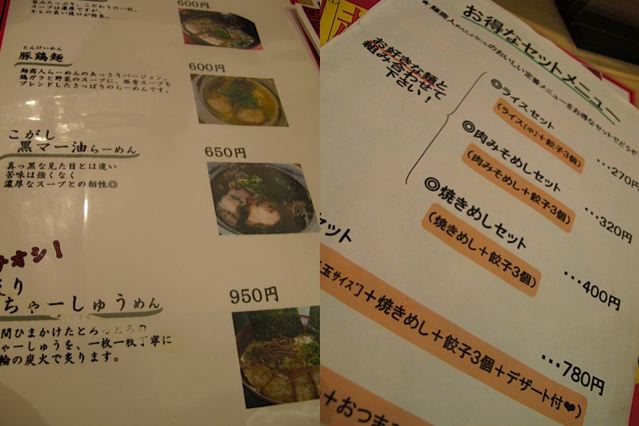 600円
キレの良い後口が特長。
とんけいめん
豚鶏麺
600円
麺商人らーめんのあっさりバージョン。
鶏ガラと野菜のスープに、豚骨スープを
ブレンドしたさっぱりのらーめんです。
こがし
黒マー油らーめん
650円
真っ黒な見た目とは違い
苦味は強くなく
濃厚なスープとの相性◎
オシ!
ちゃーしゅうめん
950円
間ひまかけたとろっとろの
ゃーしゅうを、一枚一枚丁寧に
輪の炭火で炙ります。
お得なセットメニュー
のおいしい定番メニューをお得なセットでどうぞ
お好きな麺と
組み合わせて
下さい!
◎ライスセット
(ライス(中)+餃子3個)
…270円
◎肉みそめしセット
(肉みそめし+餃子3個)
…320円
◎焼きめしセット
(焼きめし+餃子3個)
…400円
セット
玉サイズ]+焼きめし+餃子3個+デザート付❤)
…780円
+おつま